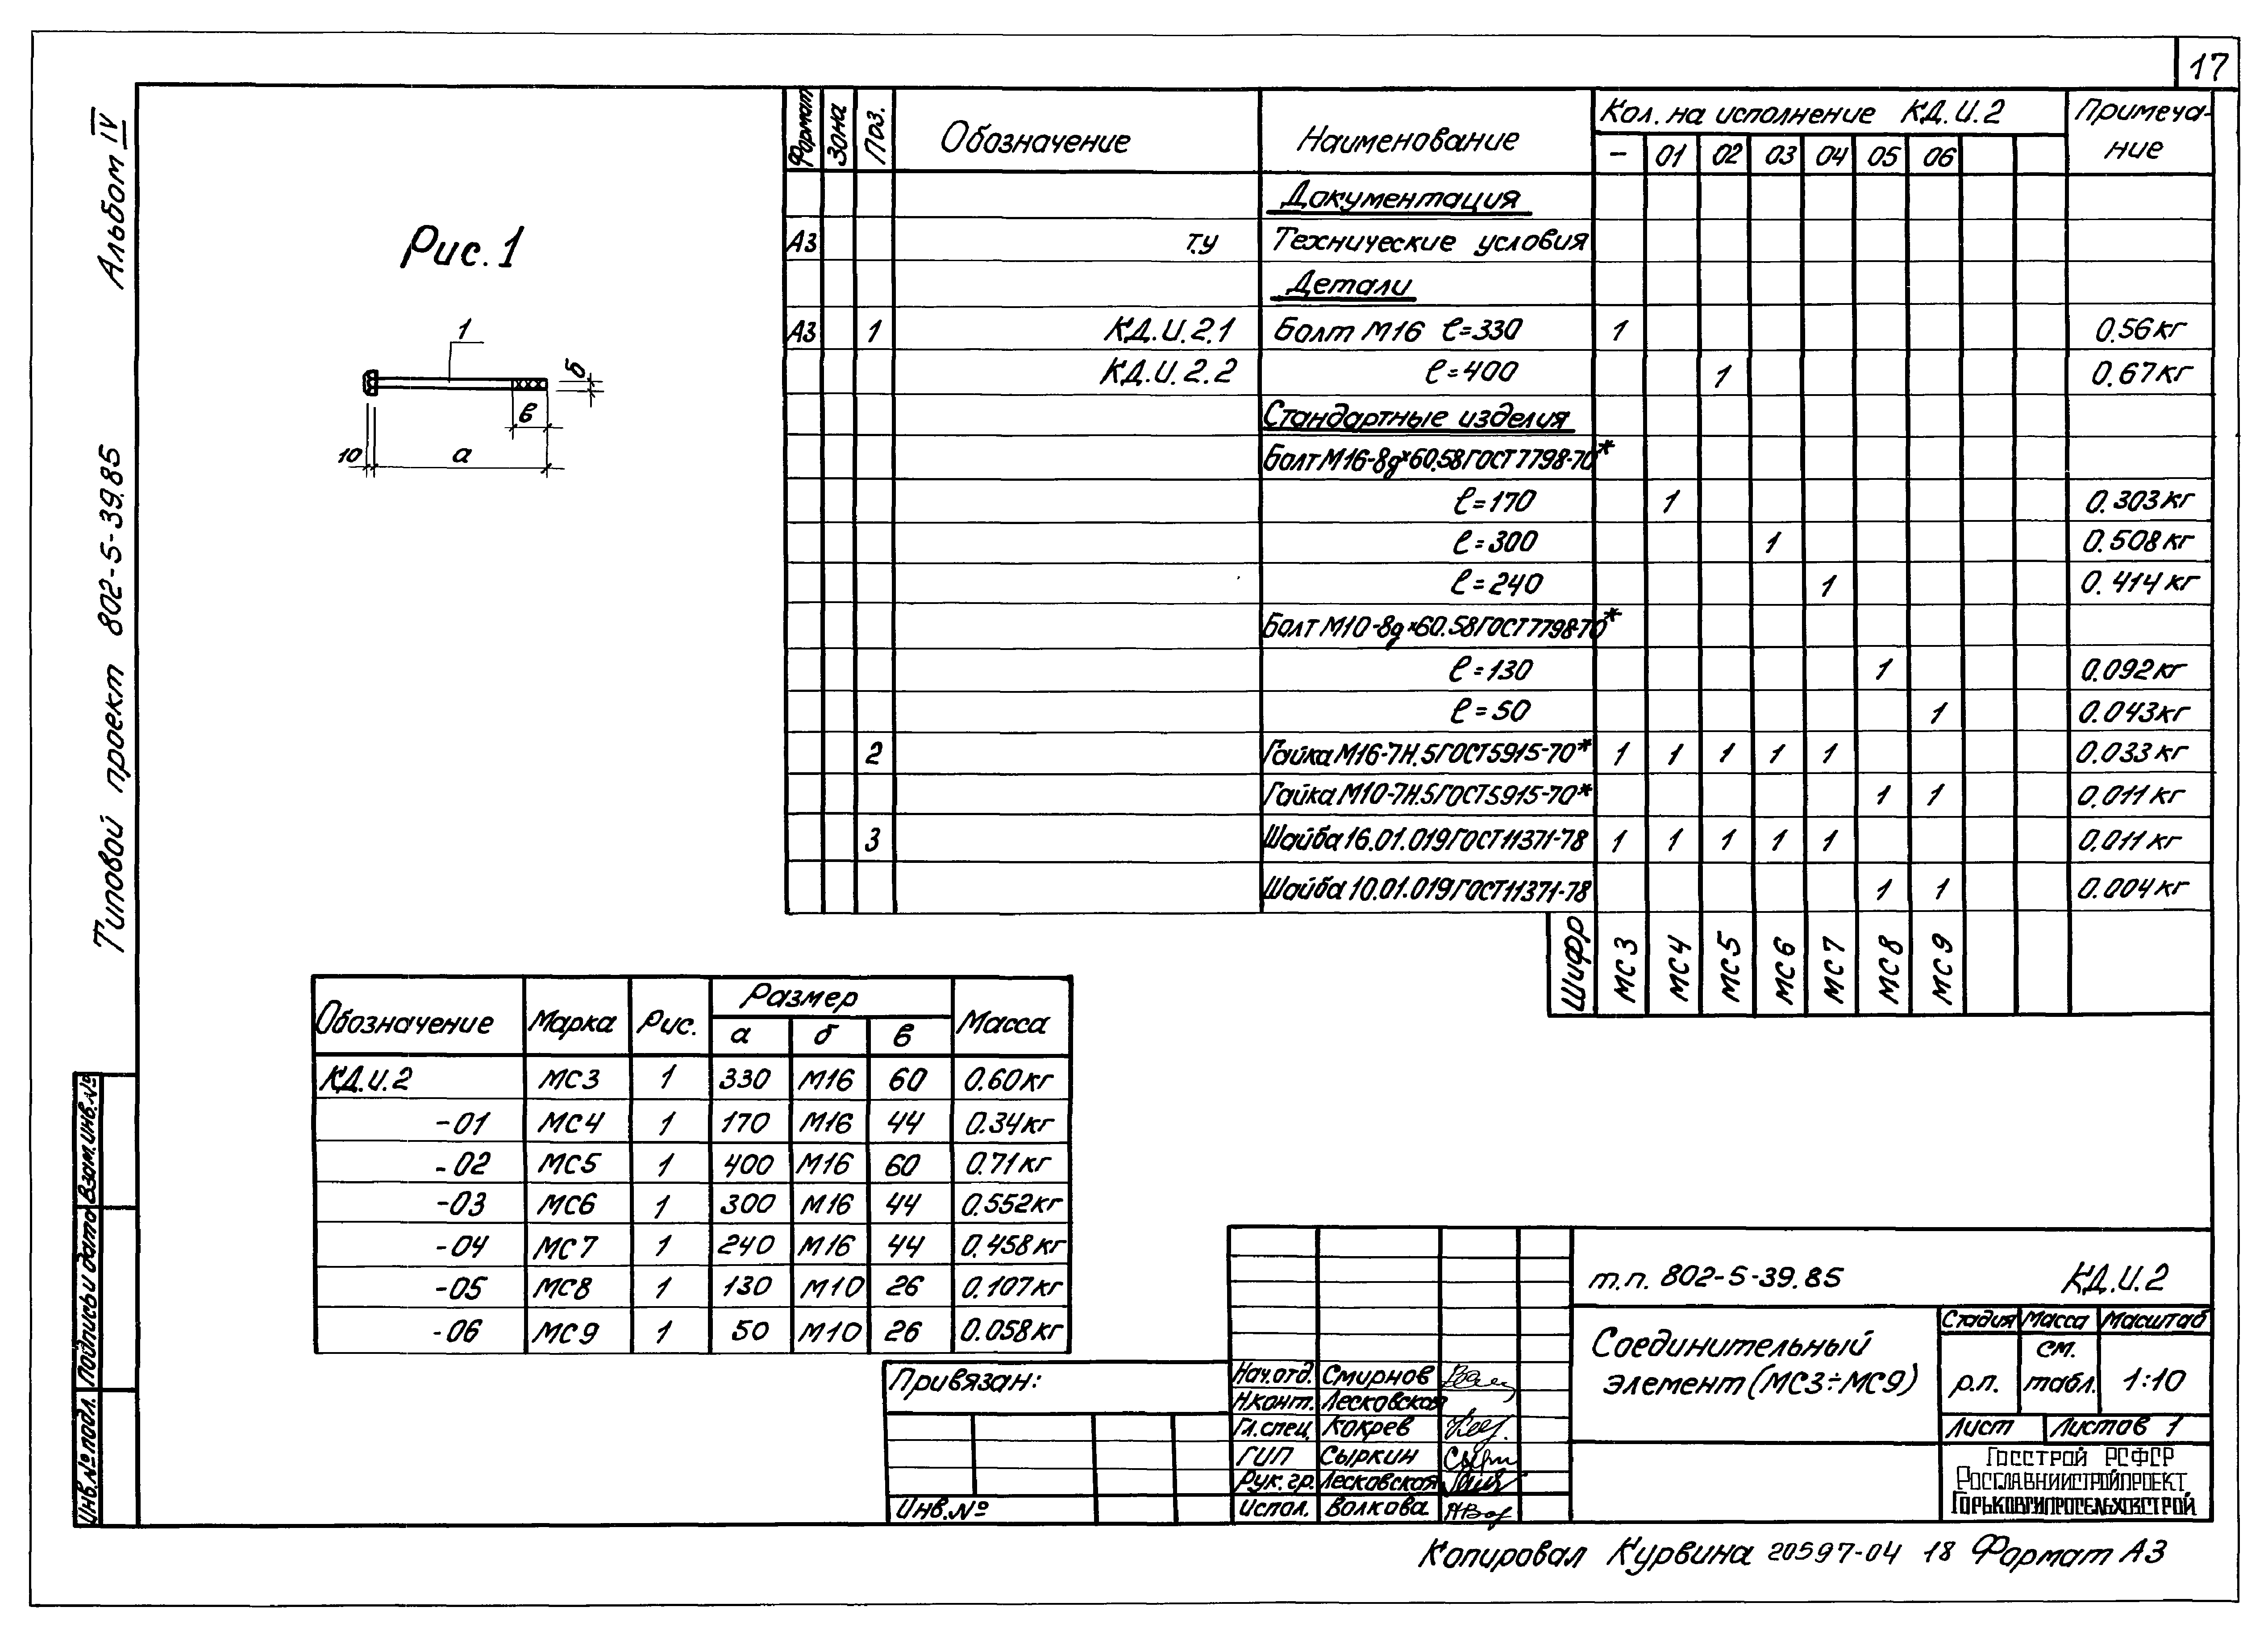 17
Альбом IV
Типовой проект 802-5-39.85
Рис. 1
1
б
в
10
а
Формат Зона Поз. Обозначение Наименование Кол. на исполнение КД.И.2 Примеча-
ние
- 01 02 03 04 05 06
Документация
А3 т.у Технические условия
Детали
А3 1 КД.И.2.1 Болт М16 ℓ=330 1 0.56 кг
КД.И.2.2 ℓ=400 1 0.67 кг
Стандартные изделия
Болт М16-8g×60.58 ГОСТ 7798-70*
ℓ=170 1 0.303 кг
ℓ=300 1 0.508 кг
ℓ=240 1 0.414 кг
Болт М10-8g×60.58 ГОСТ 7798-70*
ℓ=130 1 0.092 кг
ℓ=50 1 0.043 кг
2 Гайка М16-7Н.5 ГОСТ 5915-70* 1 1 1 1 1 0.033 кг
Гайка М10-7Н.5 ГОСТ 5915-70* 1 1 0.011 кг
3 Шайба 16.01.019 ГОСТ 11371-78 1 1 1 1 1 0.011 кг
Шайба 10.01.019 ГОСТ 11371-78 1 1 0.004 кг
Шифр МС3 МС4 МС5 МС6 МС7 МС8 МС9
Обозначение Марка Рис. Размер Масса
а б в
КД.И.2 МС3 1 330 М16 60 0.60 кг
-01 МС4 1 170 М16 44 0.34 кг
-02 МС5 1 400 М16 60 0.71 кг
-03 МС6 1 300 М16 44 0.552 кг
-04 МС7 1 240 М16 44 0.458 кг
-05 МС8 1 130 М10 26 0.107 кг
-06 МС9 1 50 М10 26 0.058 кг
Взам. инв. №
Подпись и дата
Инв. № подл.
Привязан:
Инв. №
Нач. отд. Смирнов
Н.конт. Лесковская
Гл. спец. Кокрев
ГИП Сыркин
Рук. гр. Лесковская
Испол. Волкова
т.п. 802-5-39.85 КД.И.2
Соединительный
элемент (МС3÷МС9)
Стадия Масса Масштаб
р.п. см. табл. 1:10
Лист Листов 1
Госстрой РСФСР
Росглавниистройпроект
Горьковгипросельхозстрой
Копировал Курвина 20597-04 18 Формат А3